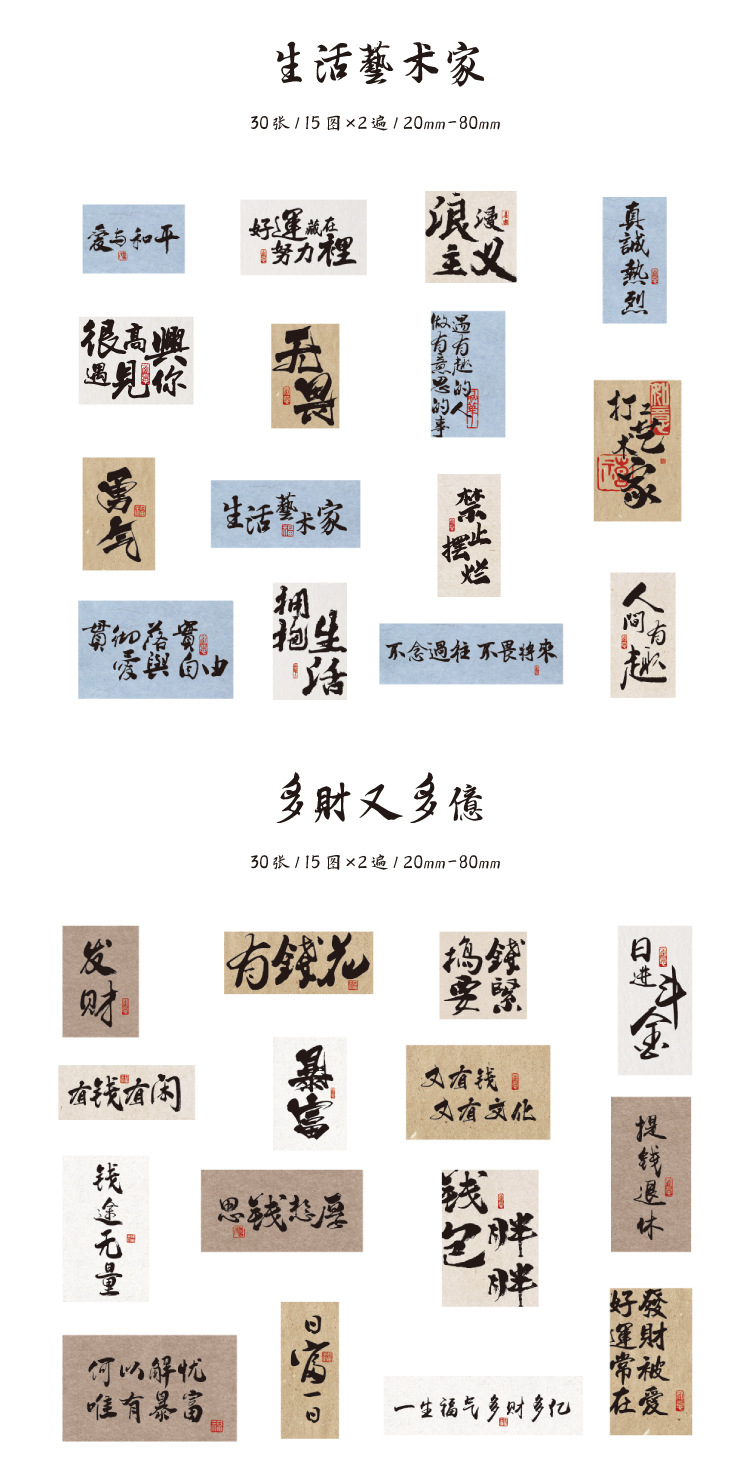 生活藝术家
30张/15图×2遍/20mm-80mm
爱与和平
好運藏在
努力裡
浪漫
主义
真誠熱烈
很高興
遇見你
无畏
遇有趣的人
做有意思的事
打工
艺术家
如意
福
勇气
生活藝术家
禁止
摆烂
貫彻落與實
愛與自由
拥抱
生活
不念過往 不畏将來
人间有趣
多財又多億
30张/15图×2遍/20mm-80mm
发财
有錢花
搞錢
要緊
日进
斗金
有钱有闲
暴富
又有钱
又有文化
提钱退休
钱途无量
思錢想厚
钱包
胖胖
發財被愛
好運常在
何以解忧
唯有暴富
日富一日
一生福气多财多亿